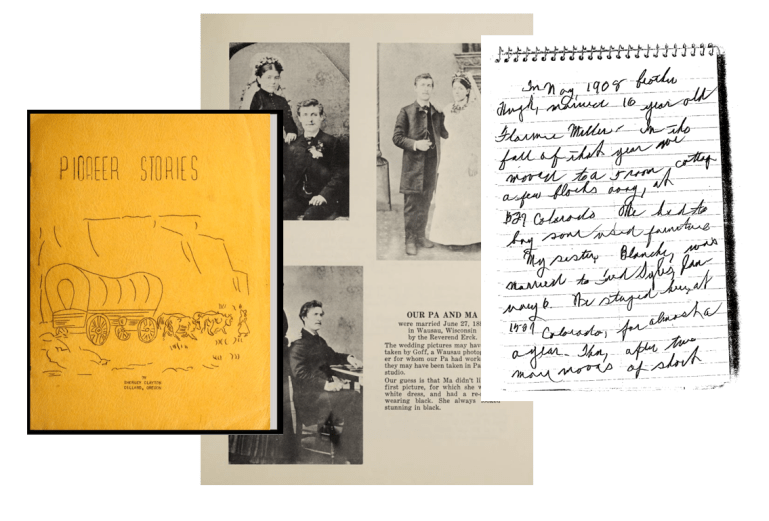 PIONEER STORIES
BY
CLAYTON
OREGON
OUR PA AND MA
were married June 27, 18
in Wausau, Wisconsin
by the Reverend Erck.
The wedding pictures may hav
taken by Goff, a Wausau photog
er for whom our Pa had work
they may have been taken in Pa
studio.
Our guess is that Ma didn't li
first picture, for which she w
white dress, and had a re-
wearing black. She always
stunning in black.
In May, 1908 brother
Hugh, married 16 year old
Miller. In the
fall of that year we
moved to a 5 room cottag
a few blocks away, at
1529 Colorado. We had to
buy some used furniture
My sister, Blanche, was
married to Fred Jan
uary 6. We stayed here, at
1529 Colorado, for almost a
year. Then, after two
more moves of short